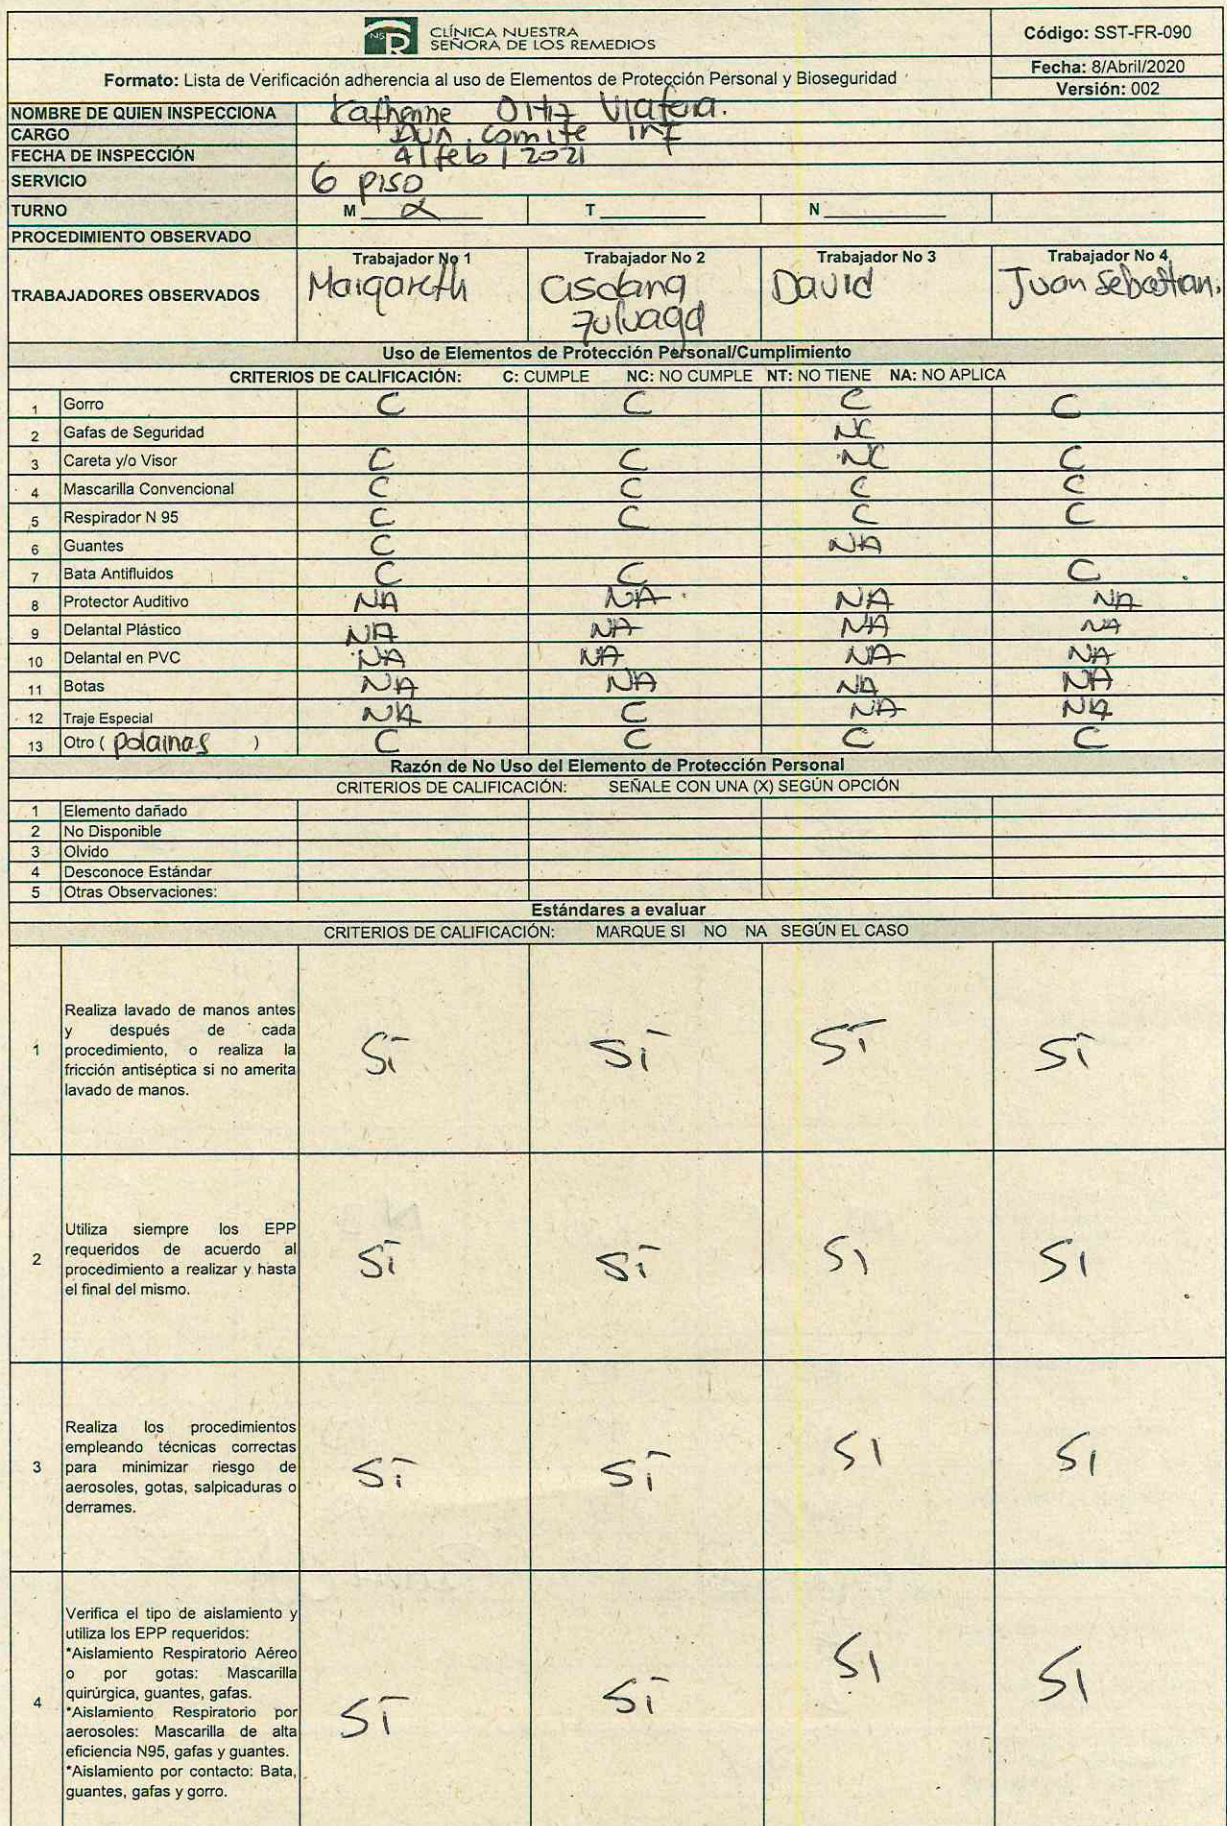 NSR CLÍNICA NUESTRA
SEÑORA DE LOS REMEDIOS
Código: SST-FR-090
Formato: Lista de Verificación adherencia al uso de Elementos de Protección Personal y Bioseguridad
Fecha: 8/Abril/2020
Versión: 002
NOMBRE DE QUIEN INSPECCIONA Katherine Ortiz Viafara.
CARGO comite inf
FECHA DE INSPECCIÓN 4/feb/2021
SERVICIO 6 piso
TURNO M X T N
PROCEDIMIENTO OBSERVADO
Trabajador No 1 Trabajador No 2 Trabajador No 3 Trabajador No 4
TRABAJADORES OBSERVADOS Margareth David Juan Sebastian.
Uso de Elementos de Protección Personal/Cumplimiento
CRITERIOS DE CALIFICACIÓN: C: CUMPLE NC: NO CUMPLE NT: NO TIENE NA: NO APLICA
1 Gorro C C C C
2 Gafas de Seguridad NC
3 Careta y/o Visor C C NC C
4 Mascarilla Convencional C C C C
5 Respirador N 95 C C C C
6 Guantes C NA
7 Bata Antifluidos C C C
8 Protector Auditivo NA NA NA NA
9 Delantal Plástico NA NA NA NA
10 Delantal en PVC NA NA NA NA
11 Botas NA NA NA NA
12 Traje Especial NA C NA NA
13 Otro ( polainas ) C C C C
Razón de No Uso del Elemento de Protección Personal
CRITERIOS DE CALIFICACIÓN: SEÑALE CON UNA (X) SEGÚN OPCIÓN
1 Elemento dañado
2 No Disponible
3 Olvido
4 Desconoce Estándar
5 Otras Observaciones:
Estándares a evaluar
CRITERIOS DE CALIFICACIÓN: MARQUE SI NO NA SEGÚN EL CASO
Realiza lavado de manos antes
y después de cada
1 procedimiento, o realiza la
fricción antiséptica si no amerita
lavado de manos.
Sí Sí Sí Sí
Utiliza siempre los EPP
requeridos de acuerdo al
2 procedimiento a realizar y hasta
el final del mismo.
Sí Sí SI SI
Realiza los procedimientos
empleando técnicas correctas
3 para minimizar riesgo de
aerosoles, gotas, salpicaduras o
derrames.
Sí Sí SI SI
Verifica el tipo de aislamiento y
utiliza los EPP requeridos:
*Aislamiento Respiratorio Aéreo
o por gotas: Mascarilla
quirúrgica, guantes, gafas.
4 *Aislamiento Respiratorio por
aerosoles: Mascarilla de alta
eficiencia N95, gafas y guantes.
*Aislamiento por contacto: Bata,
guantes, gafas y gorro.
Sí Sí SI SI